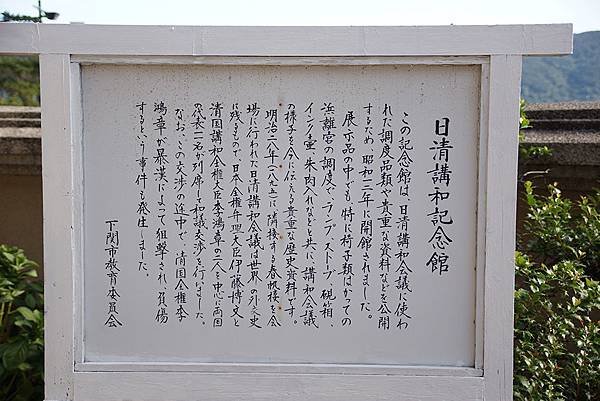 日清講和記念館
この記念館は、日清講和会議に使わ
れた調度品類や貴重な資料などを公開
するため、昭和十二年に開館されました。
展示品の中でも、特に椅子類はかつての
浜離宮の調度で、ランプ、ストーブ、硯箱、
インク壷、朱肉入れなどと共に、講和会議
の様子を今に伝える貴重な歴史資料です。
明治二八年(一八九五)に隣接する春帆楼を会
場に行われた日清講和会議は世界の外交史
に残るもので、日本全権弁理大臣伊藤博文と
清国講和全権大臣李鴻章の二人を中心に両国
の代表一名が列席して和議交渉を行いました。
なお、この交渉の途中で、清国全権李
鴻章が暴漢によって狙撃され、負傷
するという事件も発生しました。
下関市教育委員会